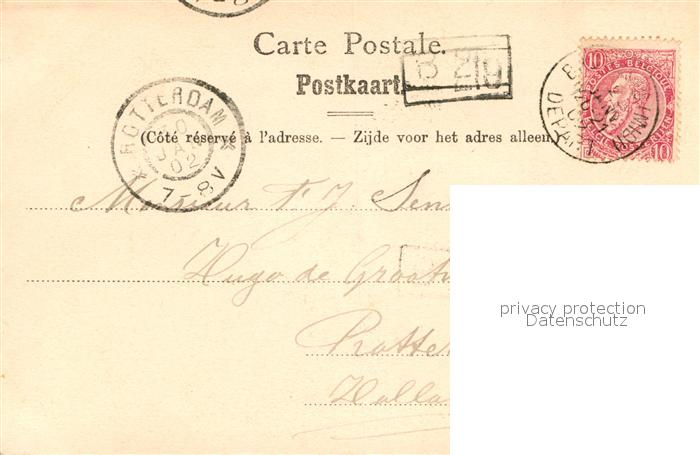 Carte Postale.
Postkaart
(Côté réservé à l'adresse. — Zijde voor het adres alleen
ROTTERDAM
02
7-8V
10 10
POSTES BELGIQUE
DEPART
10 10
Monsieur
Hugo de Groot
Rotte
Holla
privacy protection
Datenschutz